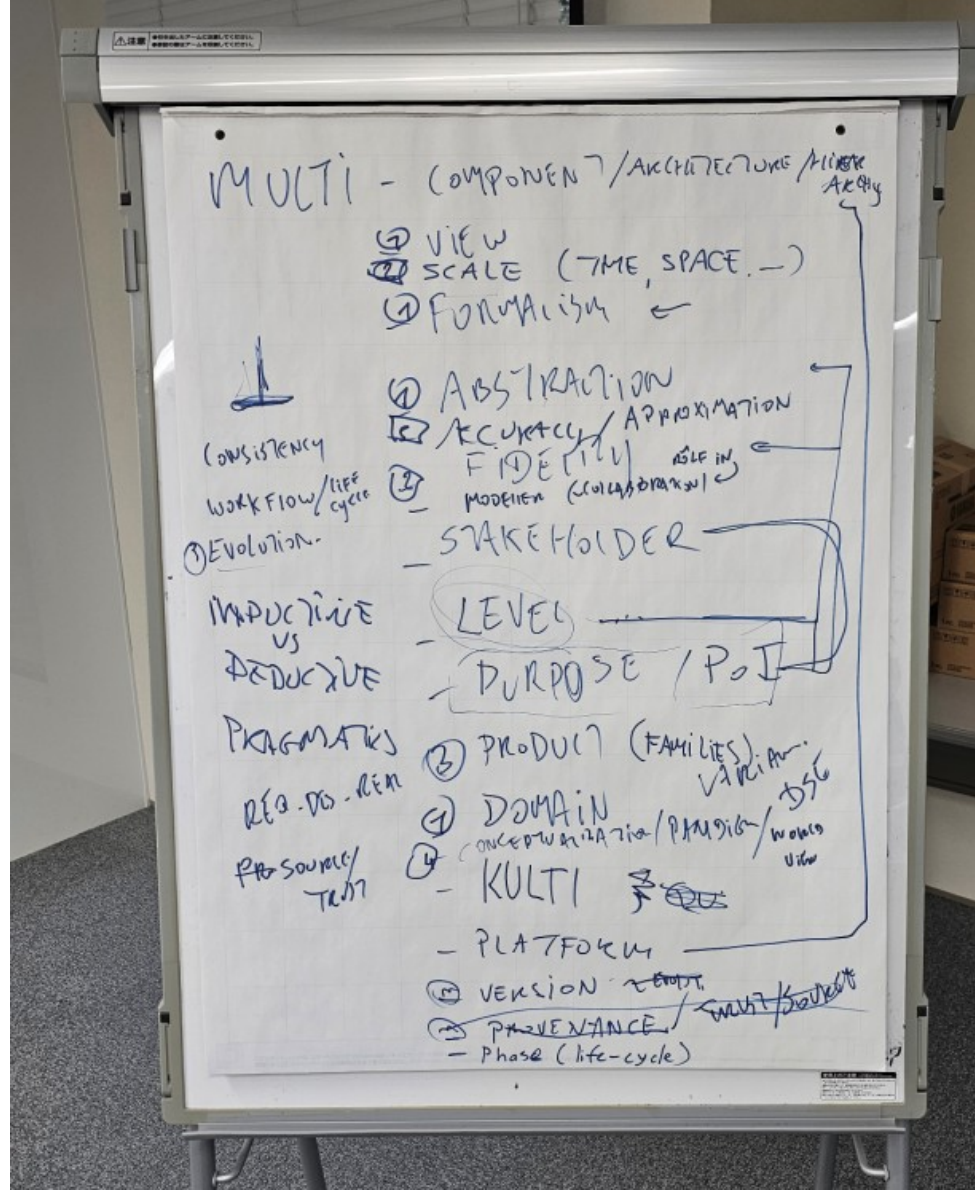 ⚠注意
MULTI - COMPONENT/ARCHITECTURE/HIERARCHY
① VIEW
② SCALE (TIME, SPACE, ...)
① FORMALISM ←
① ABSTRACTION
ACCURACY/APPROXIMATION
FIDELITY
② MODELLER (COLLABORATION) RÔLE IN
- STAKEHOLDER
- LEVEL
- PURPOSE / PoI
③ PRODUCT (FAMILIES)
VARIAN.
① DOMAIN DSE
④ CONCEPTUALIZATION/PARADIGM/WORLD VIEW
- KULTI
- PLATFORM
VERSION
PROVENANCE / TRUST/SOURCE
- Phase (life-cycle)
CONSISTENCY
WORKFLOW/LIFE CYCLE
EVOLUTION.
INDUCTIVE
VS
DEDUCTIVE
PRAGMATICS
REQ. DES. REAL
SOURCE/
TRUST